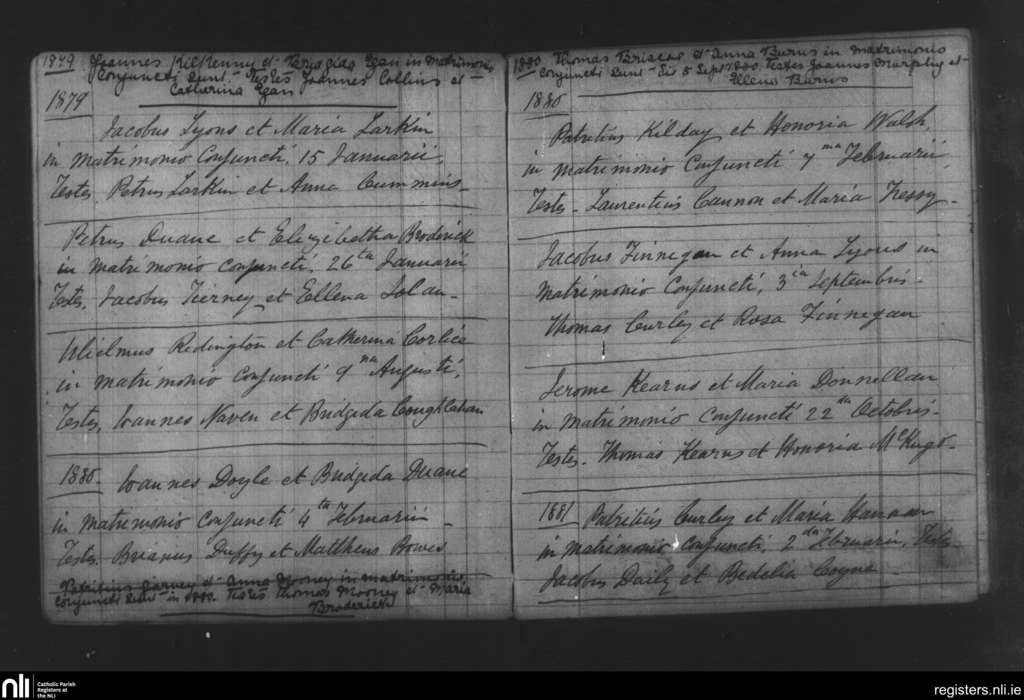 1879 Joannes Kilkenny et Brigida Egan in matrimonio
conjuncti sunt - Testes Joannes Collins et
Catherina Egan
1879
Jacobus Lyons et Maria Larkin
in matrimonio Conjuncti, 15 Januarii,
Testes, Petrus Larkin et Anna Cummins -
Petrus Duane et Elizibetha Broderick
in matrimonio conjuncti, 26th Januarii
Testes, Jacobus Tierney et Ellena Dolan -
Ulielmus Redington et Catherina Corlice
in matrimonio conjuncti 9na Augusti,
Testes, Ioannes Naven et Bridgida Coughlahan
1880. Ioannes Doyle et Bridgida Duane
in matremonio conjuncti 4ta Februarii -
Testes. Brianus Duffy et Mattheus Bowes
Patritius et Anna Mooney in matrimonio
conjuncti sunt in 1880. Testes Thomas Mooney et Maria
Broderick
1880 Thomas Briscoe et Anna Burns in matrimonio
conjuncti sunt - die 5 Sept 1880. Testes Joannes Murphy et
Ellena Burns
1880
Patritius Kilday et Honoria Walsh,
in matrimonio Conjuncti 7ma Februarii
Testes - Laurentius Cannon et Maria Fressy -
Jacobus Finnegan et Anna Lyons in
matrimonio Conjuncti, 3tia Septembris -
Thomas Curley et Rosa Finnegan
Jerome Kearns et Maria Donnellan
in matrimonio conjuncti 22da Octobris -
Testes - Thomas Kearns et Honoria McHugo -
1881 Patritius Curley et Maria Hannan
in matrimonio conjuncti, 2da Februarii, Testes
Jacobus Daily et Bedelia Coyne
nli Catholic Parish
Registers at
the NLI
registers.nli.ie